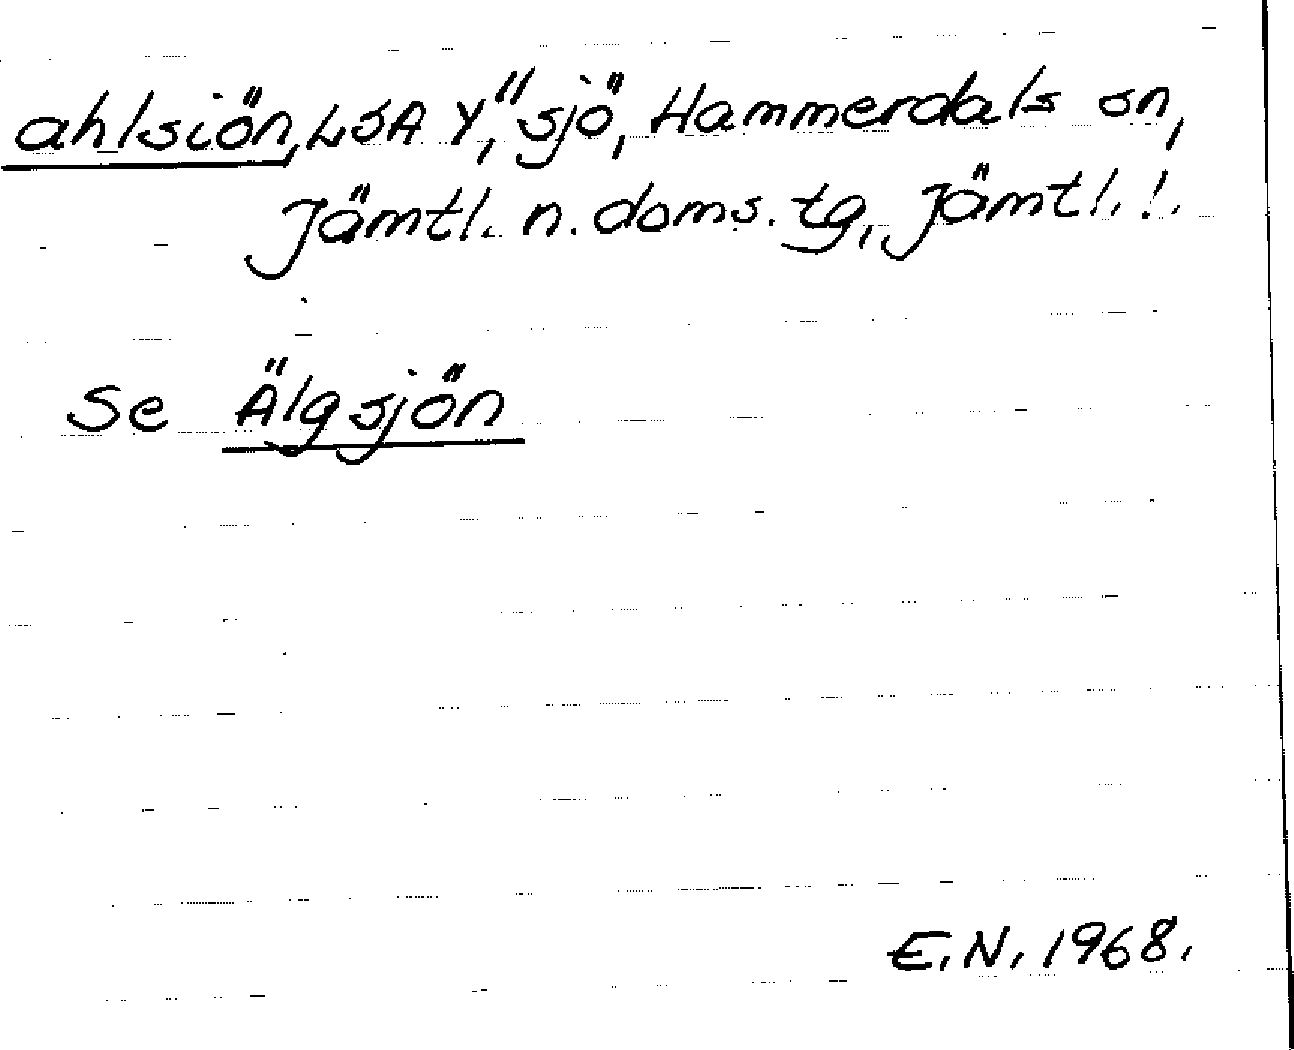 ahlsiön, LSA Y, sjö, Hammerdals sn,
Jämtl. n. doms. tg, Jämtl. l.
Se Älgsjön
E.N. 1968.